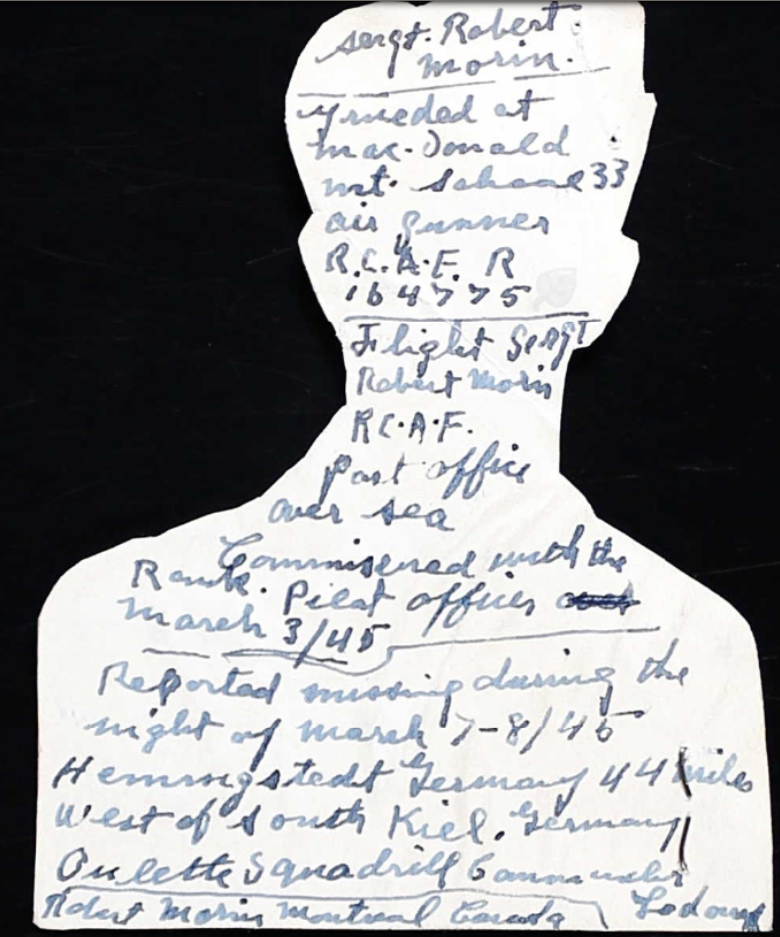 sergt. Robert
Morin.
Graeded at
Mac-Donald
Mt. School 33
air gunner
R.C.A.F. R
164775
Flight Sergt
Robert Morin
R.C.A.F.
Post office
over sea
Commissened with the
Rank. Pilot officer
March 3/45
Reported missing during the
night of March 7-8/45
Hemmigstedt Germany 44 miles
West of South Kiel. Germany
Oulette Squadrill Commander
Robert Morin Montreal Canada